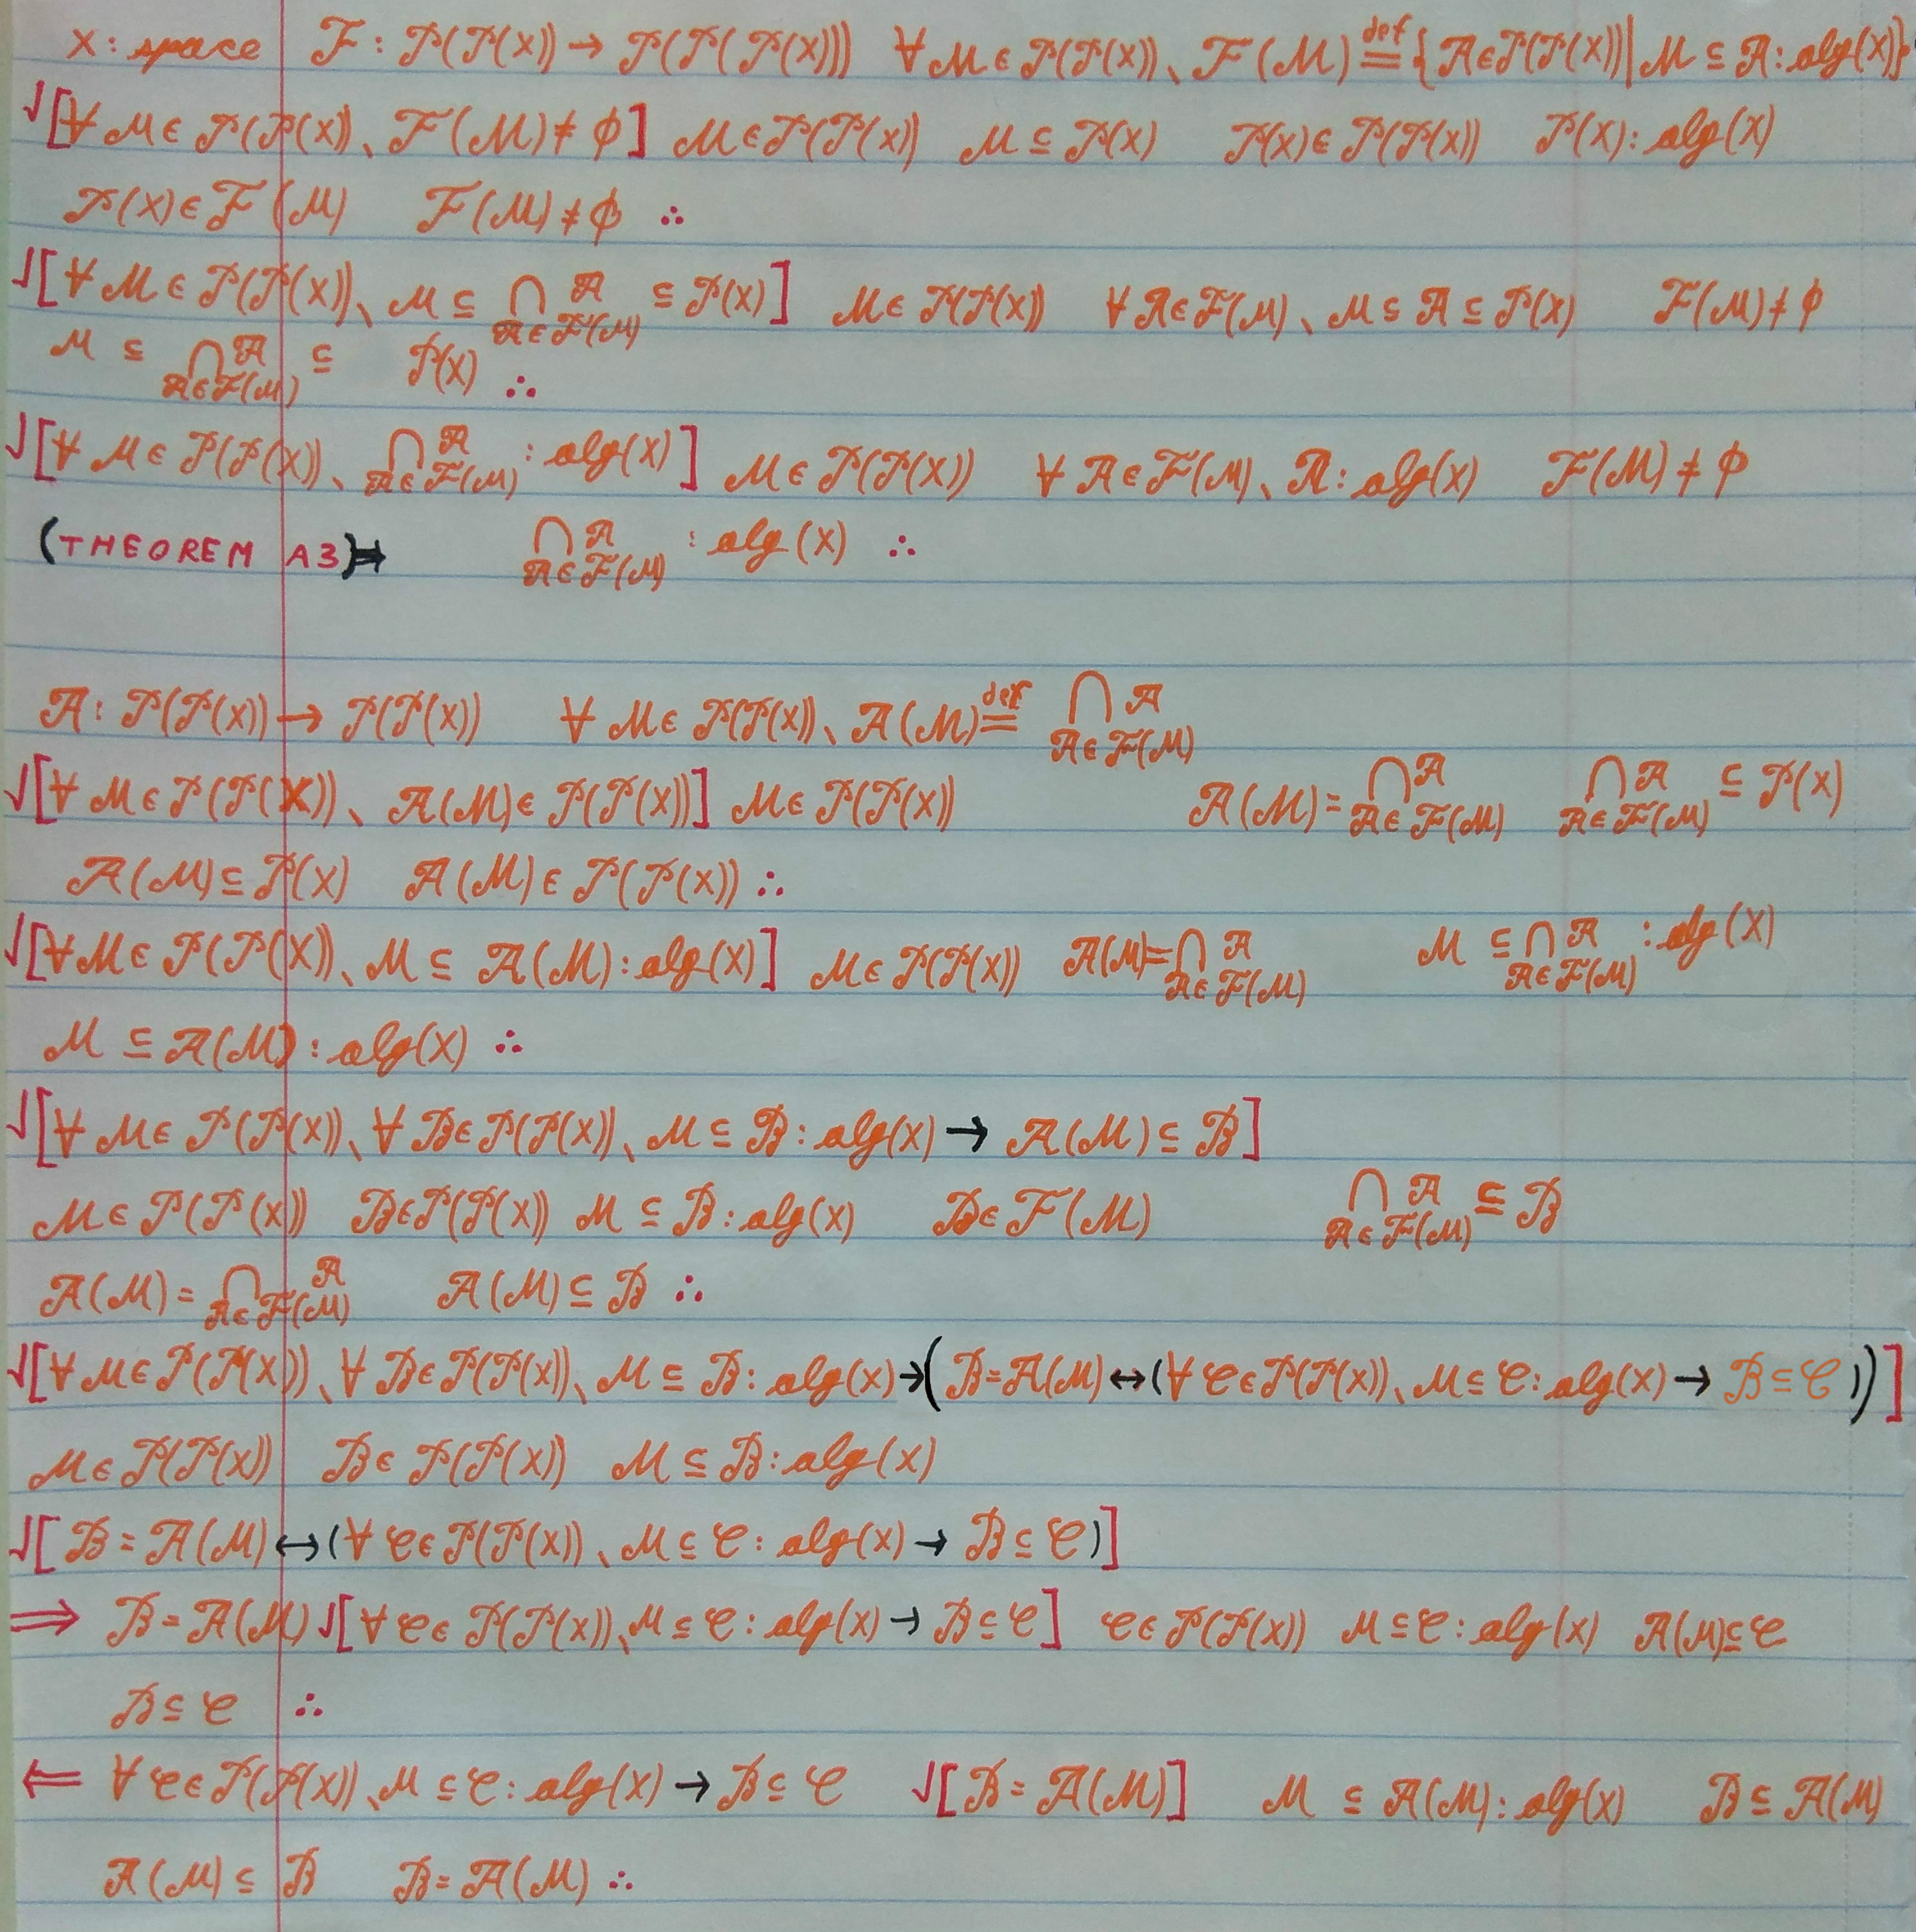 X: space 𝓕: 𝒫(𝒫(X)) → 𝒫(𝒫(𝒫(X))) ∀ℳ∈𝒫(𝒫(X))、𝓕(ℳ) ≝ {𝒜∈𝒫(𝒫(X)) | ℳ ⊆ 𝒜: alg(X)}
√[∀ℳ∈𝒫(𝒫(X))、𝓕(ℳ)≠ϕ] ℳ∈𝒫(𝒫(X)) ℳ⊆𝒫(X) 𝒫(X)∈𝒫(𝒫(X)) 𝒫(X): alg(X)
𝒫(X)∈𝓕(ℳ) 𝓕(ℳ)≠ϕ ∴
√[∀ℳ∈𝒫(𝒫(X))、ℳ ⊆ ⋂_{𝒜∈𝓕(ℳ)} 𝒜 ⊆ 𝒫(X)] ℳ∈𝒫(𝒫(X)) ∀𝒜∈𝓕(ℳ)、ℳ⊆𝒜⊆𝒫(X) 𝓕(ℳ)≠ϕ
ℳ ⊆ ⋂_{𝒜∈𝓕(ℳ)} 𝒜 ⊆ 𝒫(X) ∴
√[∀ℳ∈𝒫(𝒫(X))、⋂_{𝒜∈𝓕(ℳ)} 𝒜 : alg(X)] ℳ∈𝒫(𝒫(X)) ∀𝒜∈𝓕(ℳ)、𝒜: alg(X) 𝓕(ℳ)≠ϕ
(THEOREM A3)⇒ ⋂_{𝒜∈𝓕(ℳ)} 𝒜 : alg(X) ∴
𝒜: 𝒫(𝒫(X)) → 𝒫(𝒫(X)) ∀ℳ∈𝒫(𝒫(X))、𝒜(ℳ) ≝ ⋂_{𝒜∈𝓕(ℳ)} 𝒜
√[∀ℳ∈𝒫(𝒫(X))、𝒜(ℳ)∈𝒫(𝒫(X))] ℳ∈𝒫(𝒫(X)) 𝒜(ℳ)=⋂_{𝒜∈𝓕(ℳ)} 𝒜 ⋂_{𝒜∈𝓕(ℳ)} 𝒜 ⊆ 𝒫(X)
𝒜(ℳ)⊆𝒫(X) 𝒜(ℳ)∈𝒫(𝒫(X)) ∴
√[∀ℳ∈𝒫(𝒫(X))、ℳ ⊆ 𝒜(ℳ): alg(X)] ℳ∈𝒫(𝒫(X)) 𝒜(ℳ)=⋂_{𝒜∈𝓕(ℳ)} 𝒜 ℳ ⊆ ⋂_{𝒜∈𝓕(ℳ)} 𝒜 : alg(X)
ℳ ⊆ 𝒜(ℳ): alg(X) ∴
√[∀ℳ∈𝒫(𝒫(X))、∀ℬ∈𝒫(𝒫(X))、ℳ ⊆ ℬ: alg(X) → 𝒜(ℳ) ⊆ ℬ]
ℳ∈𝒫(𝒫(X)) ℬ∈𝒫(𝒫(X)) ℳ ⊆ ℬ: alg(X) ℬ∈𝓕(ℳ) ⋂_{𝒜∈𝓕(ℳ)} 𝒜 ⊆ ℬ
𝒜(ℳ) = ⋂_{𝒜∈𝓕(ℳ)} 𝒜 𝒜(ℳ) ⊆ ℬ ∴
√[∀ℳ∈𝒫(𝒫(X))、∀ℬ∈𝒫(𝒫(X))、ℳ ⊆ ℬ: alg(X)→(ℬ=𝒜(ℳ)↔(∀𝒞∈𝒫(𝒫(X))、ℳ⊆𝒞: alg(X) → ℬ⊆𝒞))]
ℳ∈𝒫(𝒫(X)) ℬ∈𝒫(𝒫(X)) ℳ ⊆ ℬ: alg(X)
√[ℬ=𝒜(ℳ)↔(∀𝒞∈𝒫(𝒫(X))、ℳ⊆𝒞: alg(X) → ℬ⊆𝒞)]
⇒ ℬ=𝒜(ℳ) √[∀𝒞∈𝒫(𝒫(X))、ℳ⊆𝒞: alg(X) → ℬ⊆𝒞] 𝒞∈𝒫(𝒫(X)) ℳ⊆𝒞: alg(X) 𝒜(ℳ)⊆𝒞
ℬ⊆𝒞 ∴
⇐ ∀𝒞∈𝒫(𝒫(X))、ℳ⊆𝒞: alg(X) → ℬ⊆𝒞 √[ℬ=𝒜(ℳ)] ℳ ⊆ 𝒜(ℳ): alg(X) ℬ ⊆ 𝒜(ℳ)
𝒜(ℳ) ⊆ ℬ ℬ=𝒜(ℳ) ∴